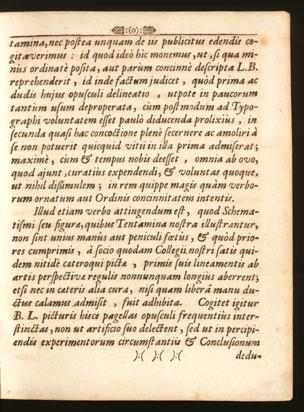 tamina, nec postea unquam de iis publicitus edendis co-
gitaverimus: id quod ideò hîc monemus, ut, si qua mi-
nùs ordinatè posita, aut parùm concinnè descripta L.B.
reprehenderit, id inde factum judicet, quòd prima ac
dudis hujus opusculi delineatio, utpote in paucorum
tantùm usum deproperata, cùm postmodum ad Typo-
graphi voluntatem esset paulò diducenda prolixiùs, in
secunda quasi hac concoctione plenè secernere ac amoliri à
se non potuerit quicquid vitii in illa prima admiserat;
maximè, cùm & tempus nobis deesset, omnia ab ovo,
quod ajunt, curatiùs expendendi, & voluntas quoque,
ut nihil dissimulem; in rem quippe magis quàm verbo-
rum ornatum aut Ordinis concinnitatem intentis.
Illud etiam verbo attingendum est, quod Schema-
tismi seu figura, quibus Tentamina nostra illustrantur,
non sint unius manûs aut peniculi fœtus, & quòd prio-
res cumprimis, à socio quodam Collegii nostri satis qui-
dem nitidè cæteroqui picta, primis suis lineamentis ab
artis perspectiva regulis nonnunquam longiùs aberrent;
etsi nec in cæteris alia cura, nisi quam libera manu du-
ctus calamus admisit, fuit adhibita. Cogitet igitur
B. L. picturis hisce pagellas opusculi frequentiùs inter-
stinctas, non ut artificio suo delectent, sed ut in percipi-
endis experimentorum circumstantiis & Conclusionum
dedu-